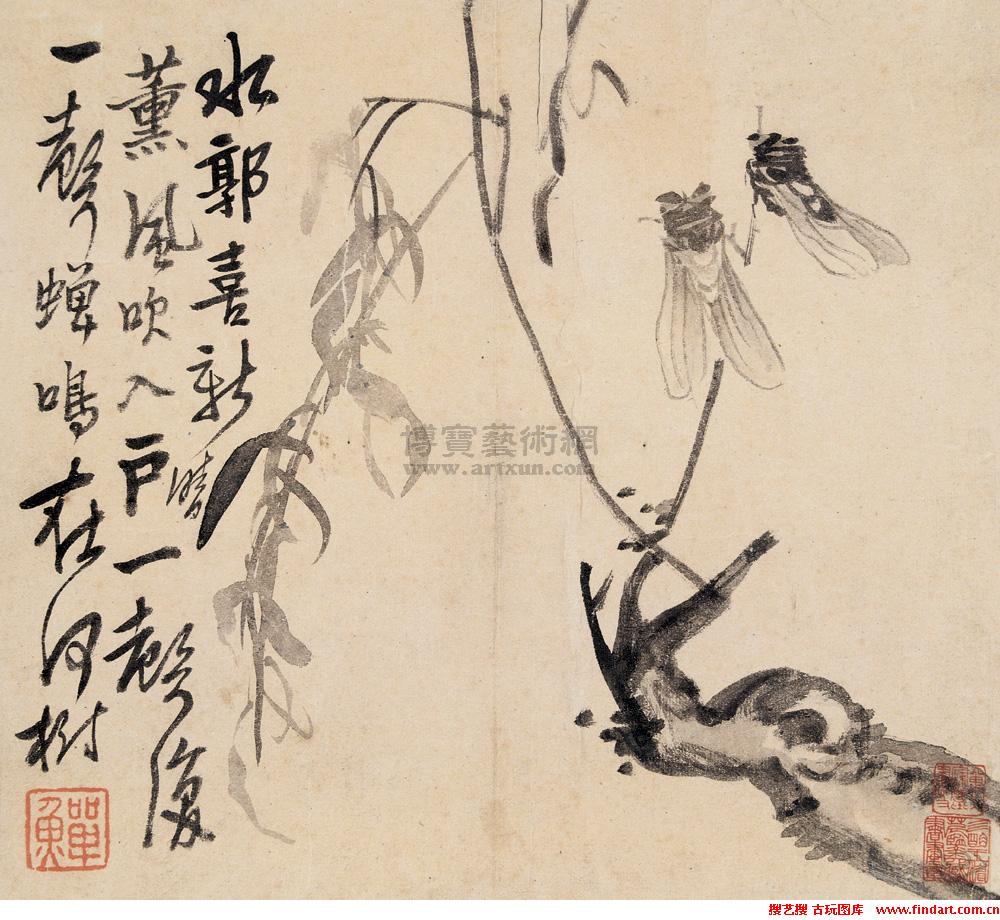 水郭喜新晴
薰风吹入户一声復
一声蝉鸣在何树
博寶藝術網
www.artxun.com
鱓
搜艺搜 古玩图库 www.findart.com.cn